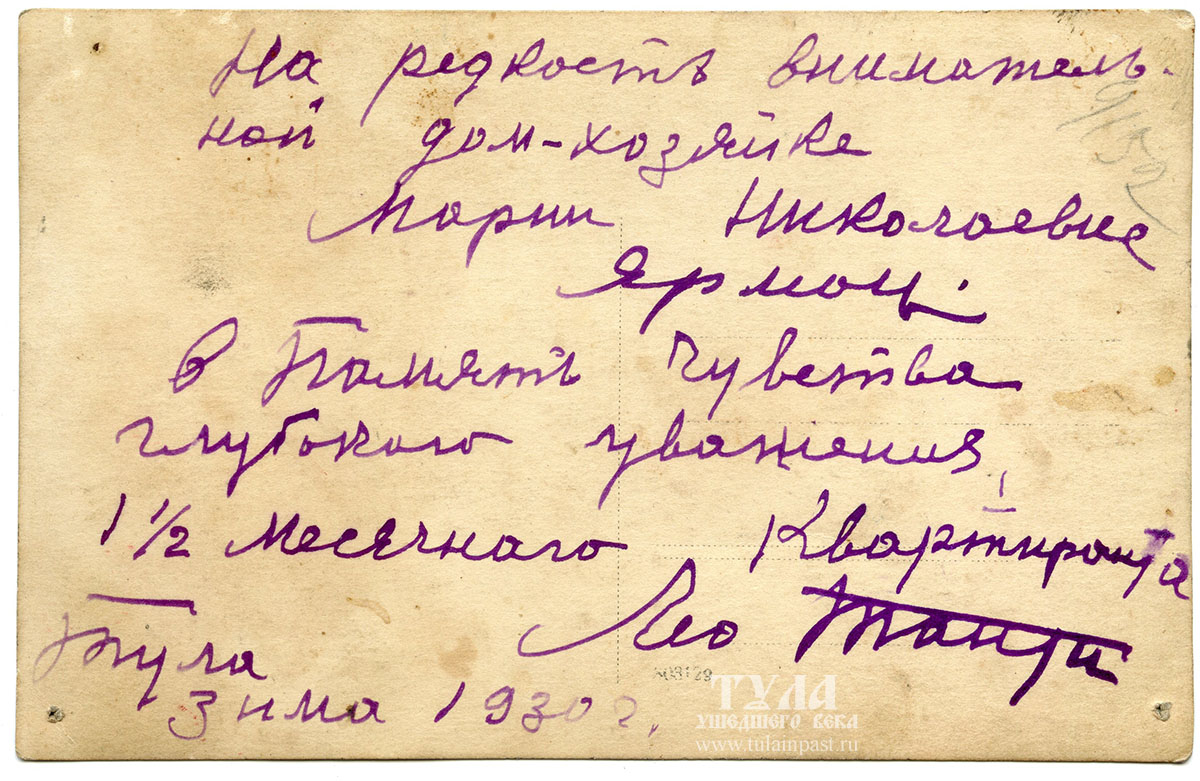 На редкость вниматель-
ной дом-хозяйке
Марии Николаевне
Ярмоц.
в Память Чувства
глубокого уважения,
1 1/2 месячного Квартиранта
Лео Танти
Тула
Зима 1930 г.
ТУЛА
УШЕДШЕГО ВЕКА
www.tulainpast.ru